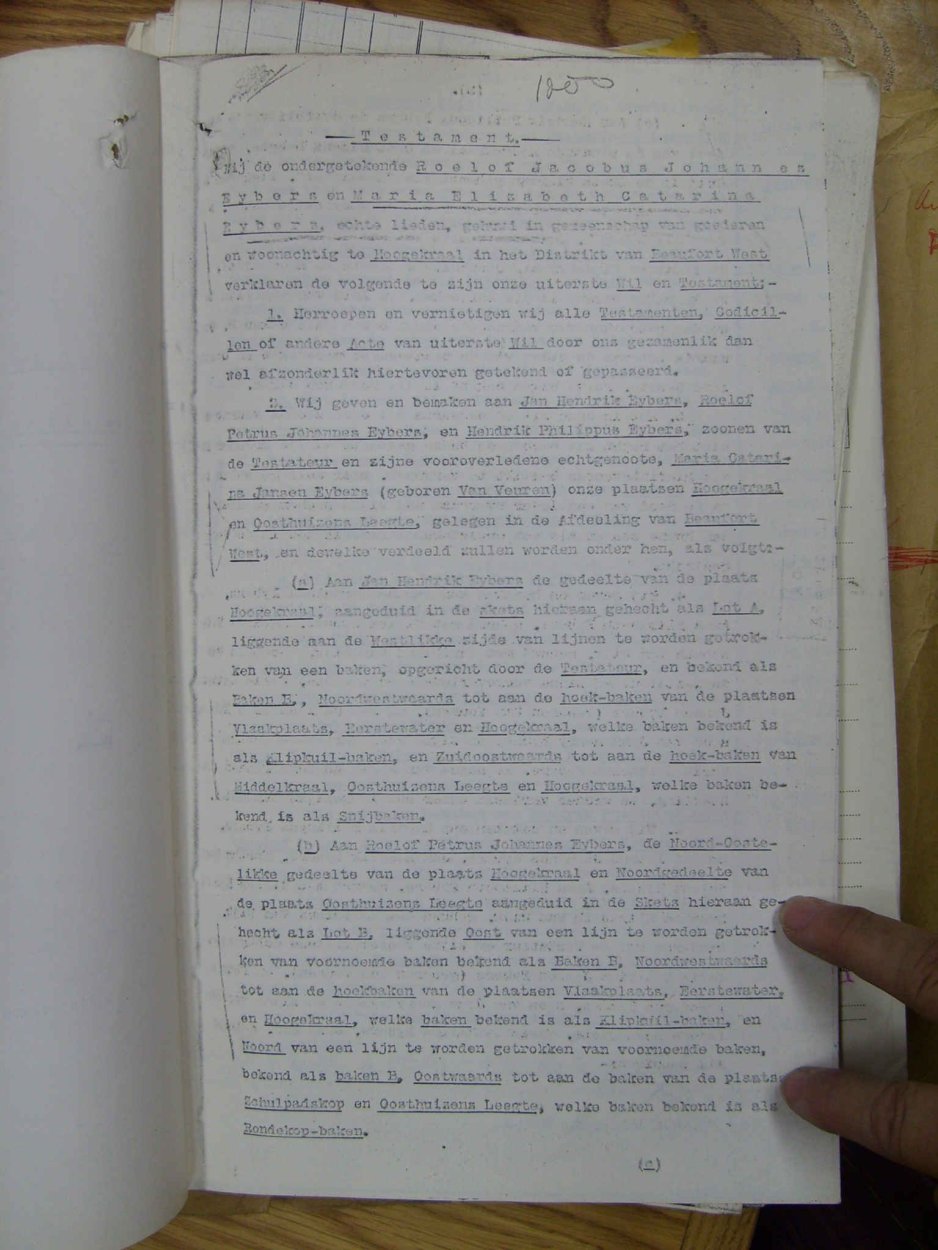 1250
Testament.
Wij de ondergetekende Roelof Jacobus Johannes
Eybers en Maria Elizabeth Catarina
Eybers, echte lieden, gehuwd in gemeenschap van goederen
en woonachtig te Hoogekraal in het Distrikt van Beaufort West
verklaren de volgende te zijn onze uiterste Wil en Testament:-
1. Herroepen en vernietigen wij alle Testamenten, Codicil-
len of andere Acte van uiterste Wil door ons gezamenlik dan
wel afzonderlik hiertevoren getekend of gepasseerd.
2. Wij geven en bemaken aan Jan Hendrik Eybers, Roelof
Petrus Johannes Eybers, en Hendrik Philippus Eybers, zoonen van
de Testateur en zijne vooroverledene echtgenoote, Maria Catari-
na Jansen Eybers (geboren Van Vuuren) onze plaatsen Hoogekraal
en Oosthuizens Leegte, gelegen in de Afdeeling van Beaufort
West, en dewelke verdeeld zullen worden onder hen, als volgt:-
(a) Aan Jan Hendrik Eybers de gedeelte van de plaats
Hoogekraal, aangeduid in de skets hieraan gehecht als Lot A,
liggende aan de Westlikke zijde van lijnen te worden getrok-
ken van een baken, opgericht door de Testateur, en bekend als
Baken B, Noordwestwaards tot aan de hoek-baken van de plaatsen
Vlaakplaats, Eerstewater en Hoogekraal, welke baken bekend is
als Klipkuil-baken, en Zuidoostwaards tot aan de hoek-baken van
Middelkraal, Oosthuizens Leegte en Hoogekraal, welke baken be-
kend is als Snijbaken.
(b) Aan Roelof Petrus Johannes Eybers, de Noord-Ooste-
likke gedeelte van de plaats Hoogekraal en Noordgedeelte van
de plaats Oosthuizens Leegte aangeduid in de Skets hieraan ge-
hecht als Lot B, liggende Oost van een lijn te worden getrok-
ken van voornoemde baken bekend als Baken B, Noordwestwaards
tot aan de hoekbaken van de plaatsen Vlaakplaats, Eerstewater,
en Hoogekraal, welke baken bekend is als Klipkuil-baken, en
Noord van een lijn te worden getrokken van voornoemde baken,
bekend als baken B, Oostwaards tot aan de baken van de plaats
Schulpadskop en Oosthuizens Leegte, welke baken bekend is als
Rondekop-baken.
(c)